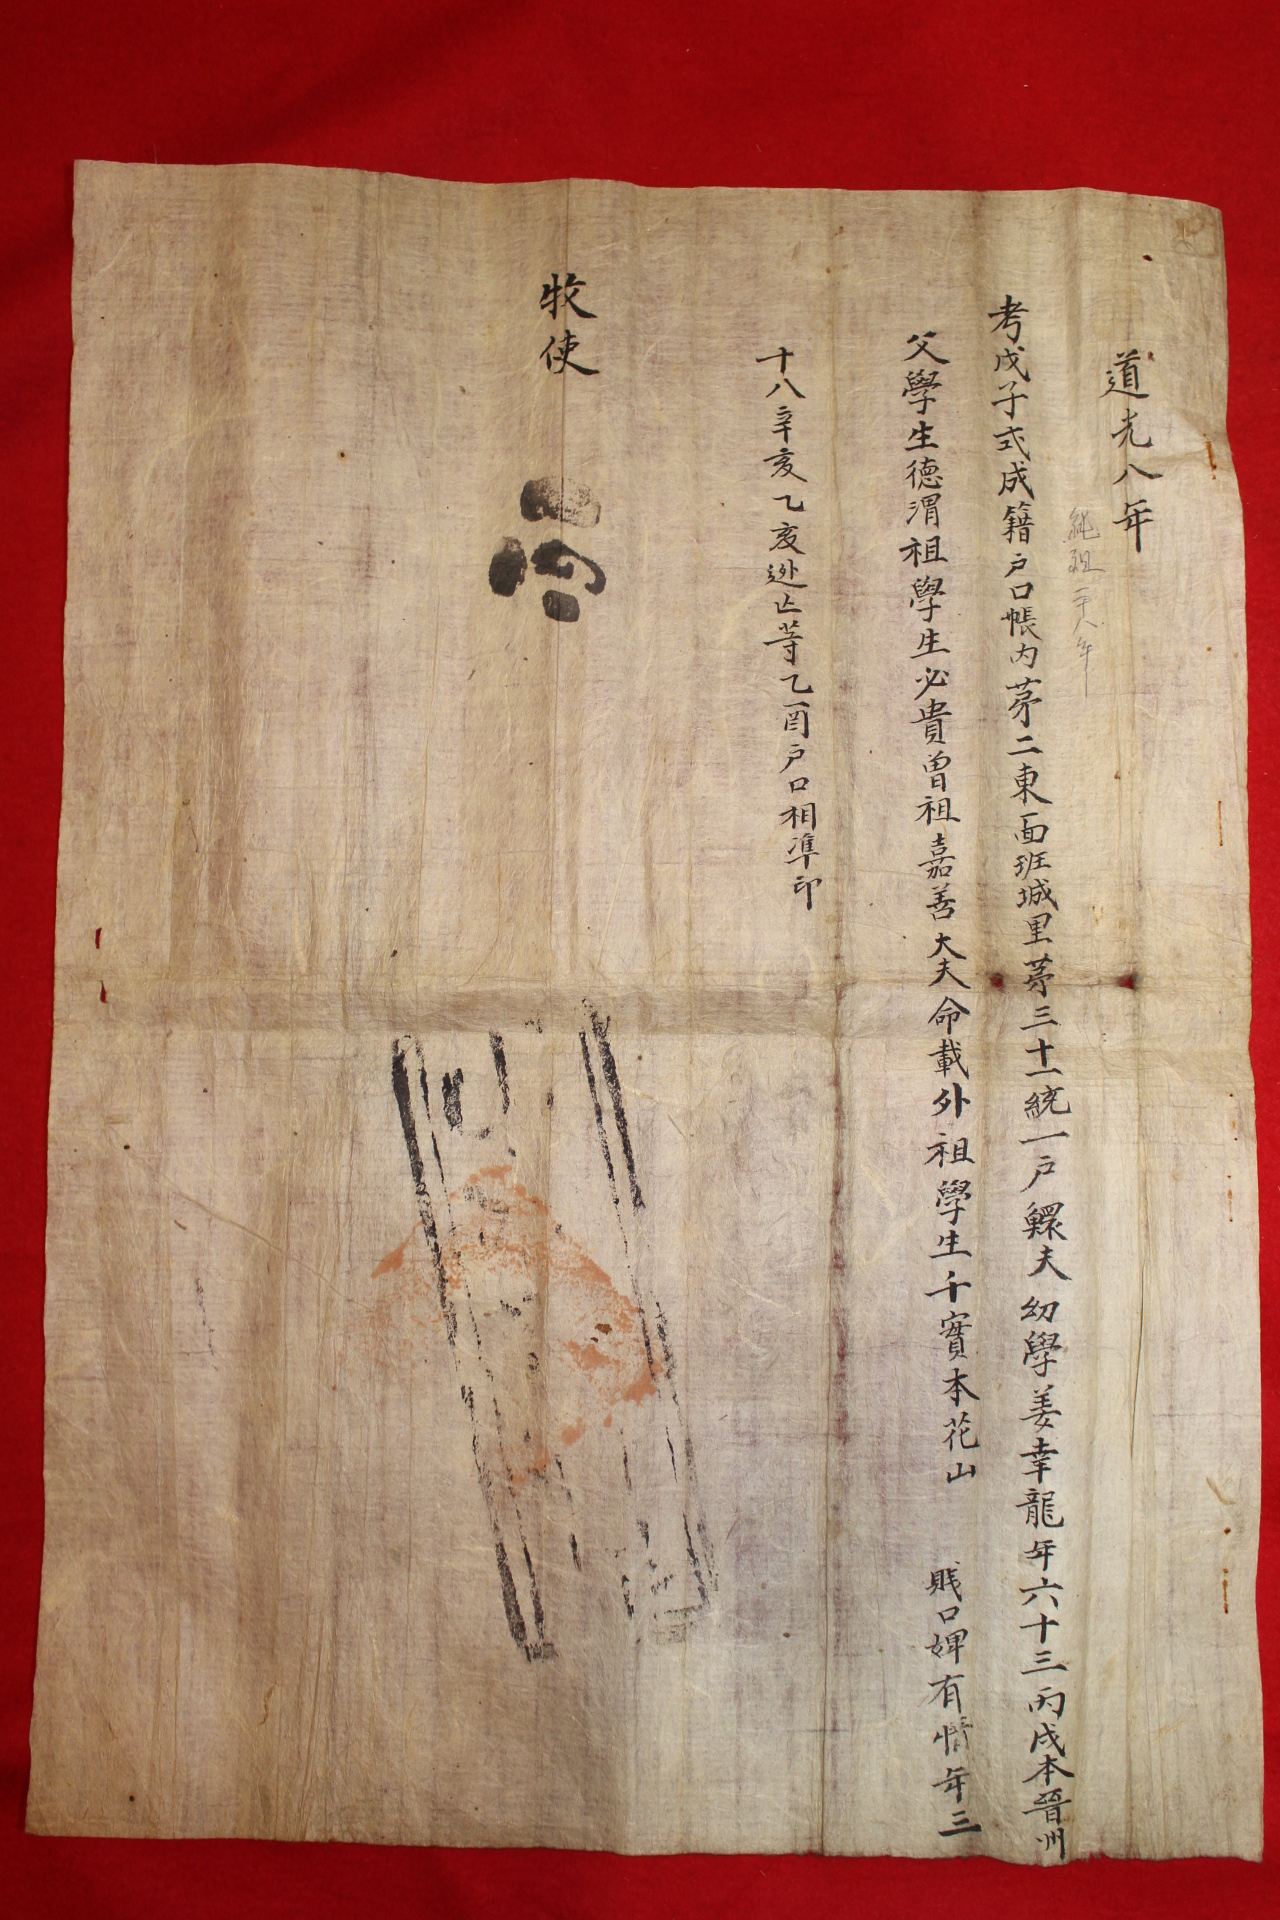 道光八年
純祖二十八年
考戊子式成籍戶口帳內茅二東面班城里茅三十一統一戶鰥夫幼學姜幸龍年六十三丙戌本晉州
父學生德渭祖學生必貴曾祖嘉善大夫命載外祖學生千實本花山 賎口婢有惜年三
十八辛亥乙亥迯亡等乙酉戶口相準印
牧使